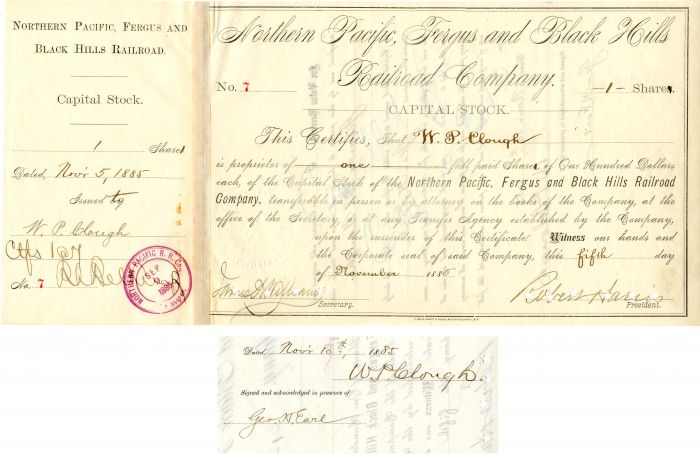 Northern Pacific, Fergus and
Black Hills Railroad.
Capital Stock.
1 Share
Dated, Nov'r 5, 1885
Issued to
W. P. Clough
Ctfs 1@7
No. 7
NORTHERN PACIFIC R. R. CO.
SEP
1885
Northern Pacific, Fergus and Black Hills
Railroad Company.
No. 7
-1- Share
CAPITAL STOCK.
This Certifies, That W. P. Clough
is proprietor of one full paid Share of One Hundred Dollars
each, of the Capital Stock of the Northern Pacific, Fergus and Black Hills Railroad
Company, transferable in person or by attorney on the books of the Company, at
the office of the Secretary, or at any Transfer Agency established by the Company,
upon the surrender of this Certificate. Witness our hands and
the Corporate seal of said Company, this fifth day
of November 1885
Robert Harris
Secretary.
President.
Dated, Nov'r 10th, 1885
W. P. Clough.
Signed and acknowledged in presence of
Geo. H. Earl